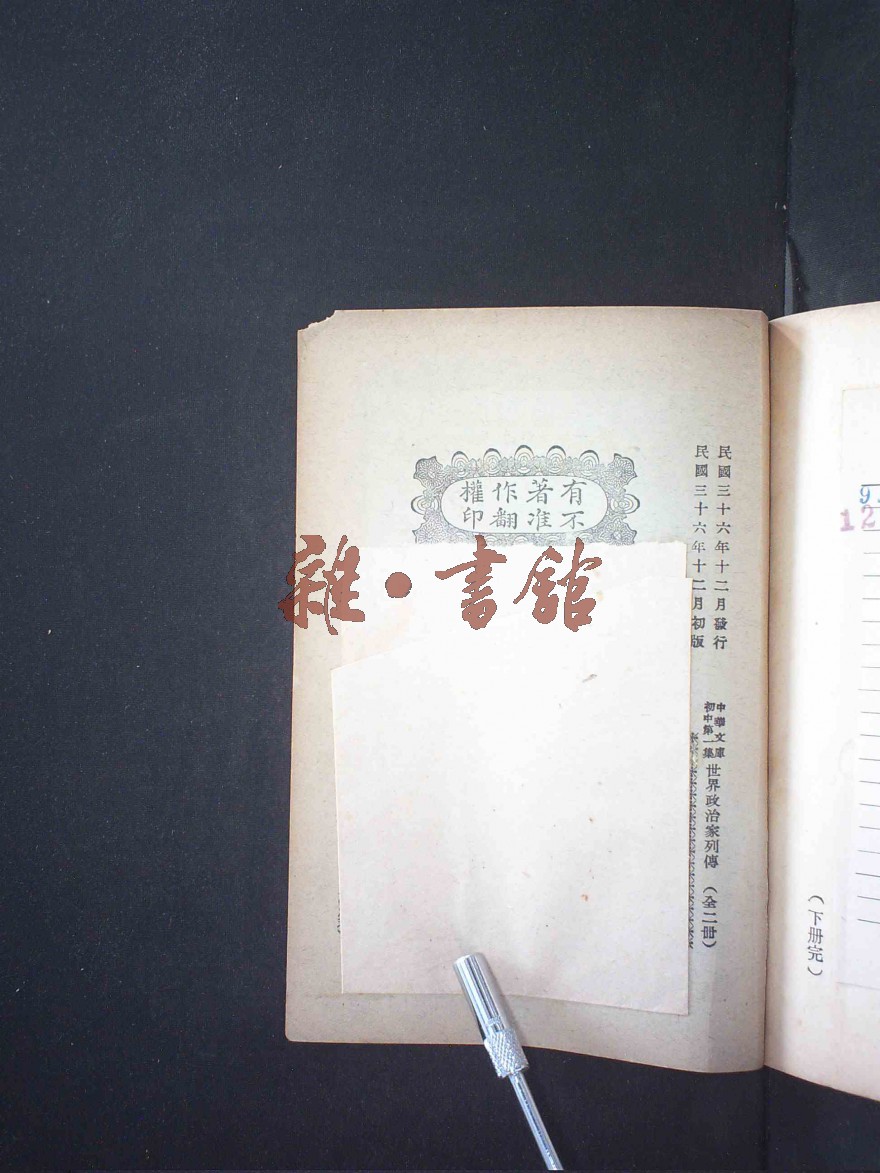 民國三十六年十二月發行
民國三十六年十二月初版
中華文庫
初中第一集
世界政治家列傳（全二冊）
有著作權
不准翻印
雜·書館
（下册完）
9.
12